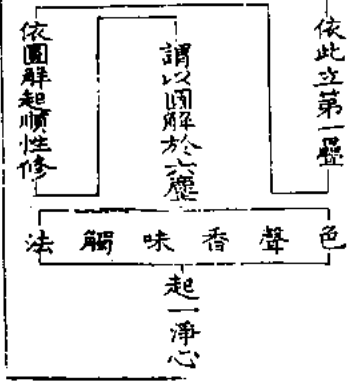 依此立第一疊
謂以圓解於六塵
依圓解起順性修
色聲香味觸法
起一淨心